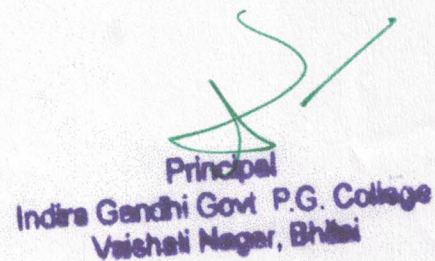 Principal
Indira Gandhi Govt P.G. College
Vaishali Nagar, Bhilai